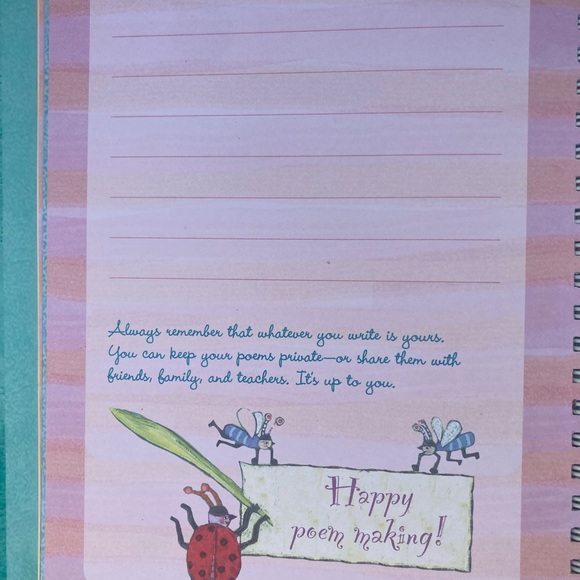 Always remember that whatever you write is yours.
You can keep your poems private—or share them with
friends, family, and teachers. It's up to you.
Happy
poem making!